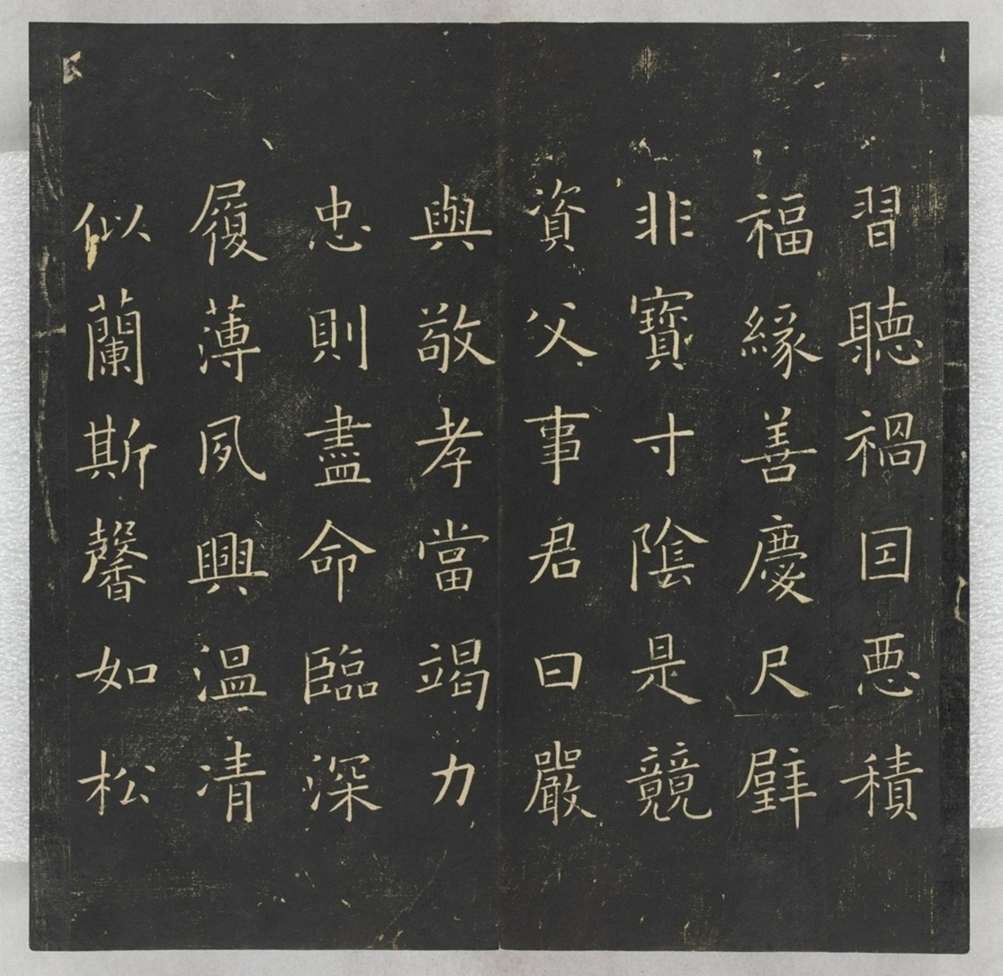 習聽禍因悪積
福緣善慶尺璧
非寶寸陰是競
資父事君曰嚴
與敬孝當竭力
忠則盡命臨深
履薄夙興温凊
似蘭斯馨如松